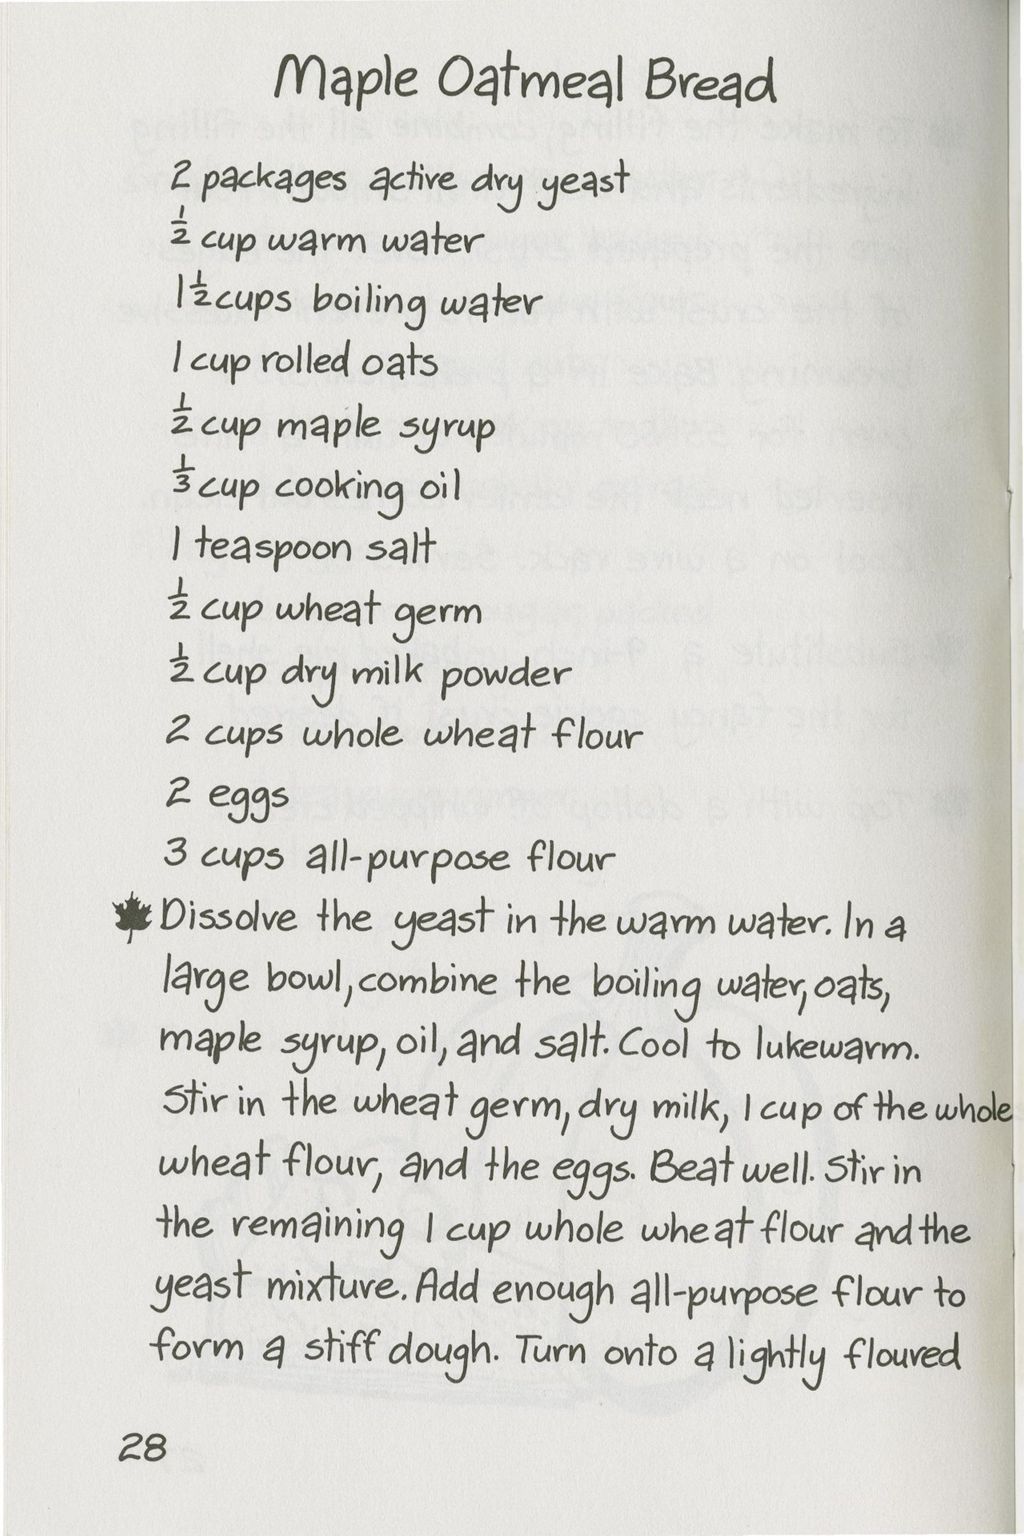 Maple Oatmeal Bread
2 packages active dry yeast
½ cup warm water
1½ cups boiling water
1 cup rolled oats
½ cup maple syrup
⅓ cup cooking oil
1 teaspoon salt
½ cup wheat germ
½ cup dry milk powder
2 cups whole wheat flour
2 eggs
3 cups all-purpose flour
Dissolve the yeast in the warm water. In a
large bowl, combine the boiling water, oats,
maple syrup, oil, and salt. Cool to lukewarm.
Stir in the wheat germ, dry milk, 1 cup of the whole
wheat flour, and the eggs. Beat well. Stir in
the remaining 1 cup whole wheat flour and the
yeast mixture. Add enough all-purpose flour to
form a stiff dough. Turn onto a lightly floured
28